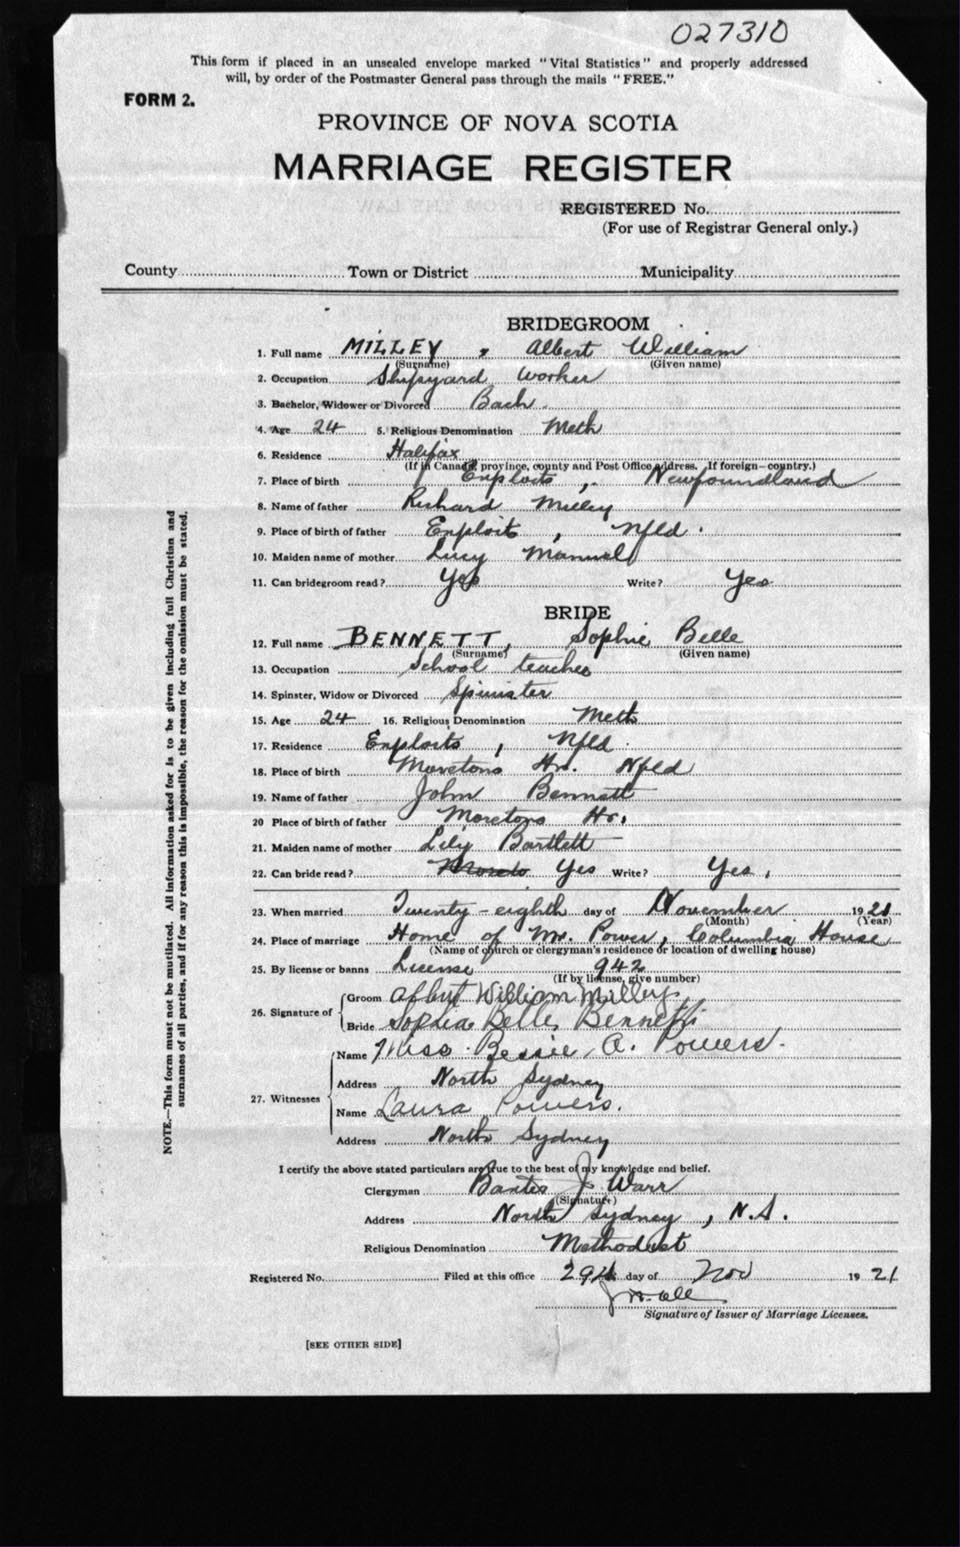 027310
This form if placed in an unsealed envelope marked "Vital Statistics" and properly addressed
will, by order of the Postmaster General pass through the mails "FREE."
FORM 2.
PROVINCE OF NOVA SCOTIA
MARRIAGE REGISTER
REGISTERED No.
(For use of Registrar General only.)
County Town or District Municipality
BRIDEGROOM
1. Full name MILLEY, Albert William
(Surname) (Given name)
2. Occupation Shipyard worker
3. Bachelor, Widower or Divorced Bach.
4. Age 24 5. Religious Denomination Meth
6. Residence Halifax
(If in Canada, province, county and Post Office address. If foreign—country.)
7. Place of birth Exploits, Newfoundland
8. Name of father Richard Milley
9. Place of birth of father Exploits, Nfld.
10. Maiden name of mother Lucy Manuel
11. Can bridegroom read? Yes Write? Yes
BRIDE
12. Full name BENNETT, Sophie Belle
(Surname) (Given name)
13. Occupation School teacher
14. Spinster, Widow or Divorced Spinster
15. Age 24 16. Religious Denomination Meth
17. Residence Exploits, Nfld.
18. Place of birth Moretons Hr. Nfld
19. Name of father John Bennett
20 Place of birth of father Moretons Hr.
21. Maiden name of mother Lily Bartlett
22. Can bride read? Yes Write? Yes,
23. When married Twenty-eighth day of November 1921
(Month) (Year)
24. Place of marriage Home of Mr. Power, Columbia House
(Name of church or clergyman's residence or location of dwelling house)
25. By license or banns License 942
(If by license, give number)
26. Signature of Groom Albert William Milley
Bride Sophia Belle Bennett
27. Witnesses Name Miss Bessie A. Powers.
Address North Sydney
Name Laura Powers.
Address North Sydney
I certify the above stated particulars are true to the best of my knowledge and belief.
Clergyman J Warr
(Signature)
Address North Sydney, N.S.
Religious Denomination Methodist
Registered No. Filed at this office 29th day of Nov 1921
Signature of Issuer of Marriage Licenses.
[SEE OTHER SIDE]
NOTE.—This form must not be mutilated. All information asked for is to be given including full Christian and
surnames of all parties, and if for any reason this is impossible, the reason for the omission must be stated.